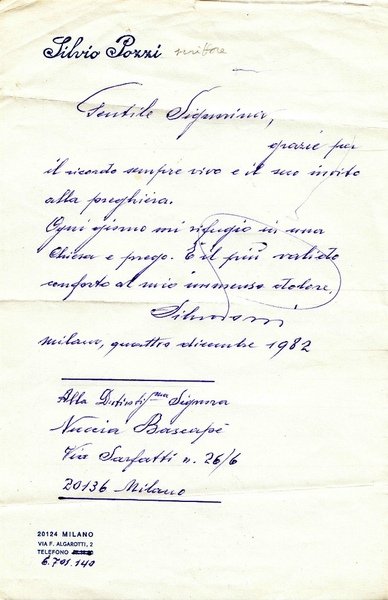 Silvio Pozzi scrittore
Gentile Signorina,
grazie per
il ricordo sempre vivo e il suo invito
alla preghiera.
Ogni giorno mi rifugio in una
Chiesa e prego. È il più valido
conforto al mio immenso dolore.
milano, quattro dicembre 1982
Alla Signora
Nuccia Bascapé
Via Sarfatti n. 26/6
20136 Milano
20124 MILANO
VIA F. ALGAROTTI, 2
TELEFONO
6.701.140